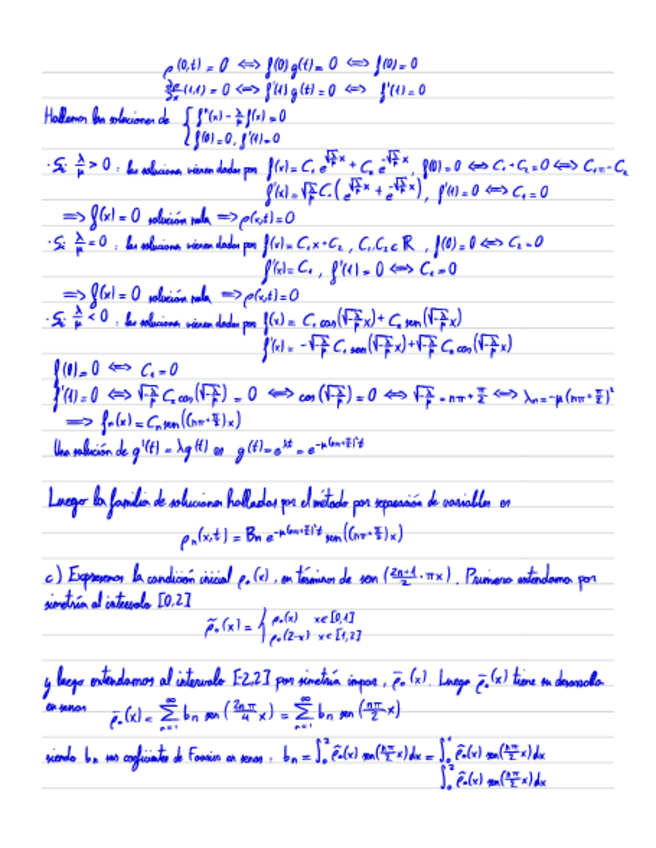 ρ(0,t) = 0 ⟺ f(0) g(t) = 0 ⟺ f(0) = 0
∂ρ/∂x (1,t) = 0 ⟺ f'(1) g(t) = 0 ⟺ f'(1) = 0
Hallemos las soluciones de { f''(x) - λ/μ f(x) = 0
f(0) = 0, f'(1) = 0
· Si λ/μ > 0 : las soluciones vienen dadas por f(x) = C₁ e^{√(λ/μ) x} + C₂ e^{-√(λ/μ) x}, f(0) = 0 ⟺ C₁ + C₂ = 0 ⟺ C₁ = -C₂
f'(x) = √(λ/μ) C₁ ( e^{√(λ/μ) x} + e^{-√(λ/μ) x} ), f'(1) = 0 ⟺ C₁ = 0
⟹ f(x) = 0 solución nula ⟹ ρ(x,t) = 0
· Si λ/μ = 0 : las soluciones vienen dadas por f(x) = C₁ x + C₂ , C₁, C₂ ∈ ℝ , f(0) = 0 ⟺ C₂ = 0
f'(x) = C₁ , f'(1) = 0 ⟺ C₁ = 0
⟹ f(x) = 0 solución nula ⟹ ρ(x,t) = 0
· Si λ/μ < 0 : las soluciones vienen dadas por f(x) = C₁ cos(√(-λ/μ) x) + C₂ sen(√(-λ/μ) x)
f'(x) = -√(-λ/μ) C₁ sen(√(-λ/μ) x) + √(-λ/μ) C₂ cos(√(-λ/μ) x)
f(0) = 0 ⟺ C₁ = 0
f'(1) = 0 ⟺ √(-λ/μ) C₂ cos(√(-λ/μ)) = 0 ⟺ cos(√(-λ/μ)) = 0 ⟺ √(-λ/μ) = nπ + π/2 ⟺ λₙ = -μ(nπ + π/2)²
⟹ fₙ(x) = Cₙ sen((nπ + π/2) x)
Una solución de g'(t) = λ g(t) es g(t) = e^{λt} = e^{-μ(nπ + π/2)² t}
Luego la familia de soluciones halladas por el método por separación de variables es
ρₙ(x,t) = Bn e^{-μ(nπ + π/2)² t} sen((nπ + π/2) x)
c) Expresemos la condición inicial ρ₀(x), en términos de sen ( (2n+1)/2 · πx ). Primero extendamos por
simetría al intervalo [0,2]
ρ̃₀(x) = { ρ₀(x) x ∈ [0,1]
ρ₀(2-x) x ∈ [1,2]
y luego extendamos al intervalo [-2,2] por simetría impar, ρ̄₀(x). Luego ρ̄₀(x) tiene su desarrollo
en senos ρ̄₀(x) = Σ_{n=1}^{∞} bn sen ( 2nπ/4 x ) = Σ_{n=1}^{∞} bn sen ( nπ/2 x )
siendo bn sus coeficientes de Fourier en senos : bn = ∫₀² ρ̃₀(x) sen( nπ/2 x ) dx = ∫₀¹ ρ̃₀(x) sen( nπ/2 x ) dx
∫₁² ρ̃₀(x) sen( nπ/2 x ) dx